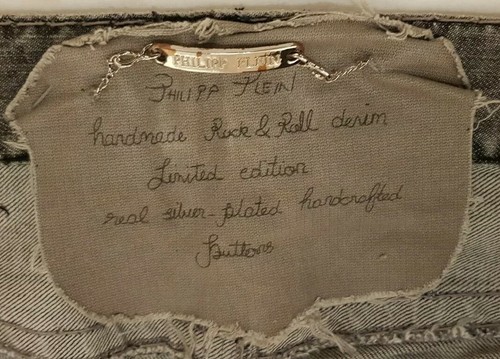 PHILIPP PLEIN
PHILIPP PLEIN
handmade Rock & Roll denim
Limited edition
real silver-plated handcrafted
buttons